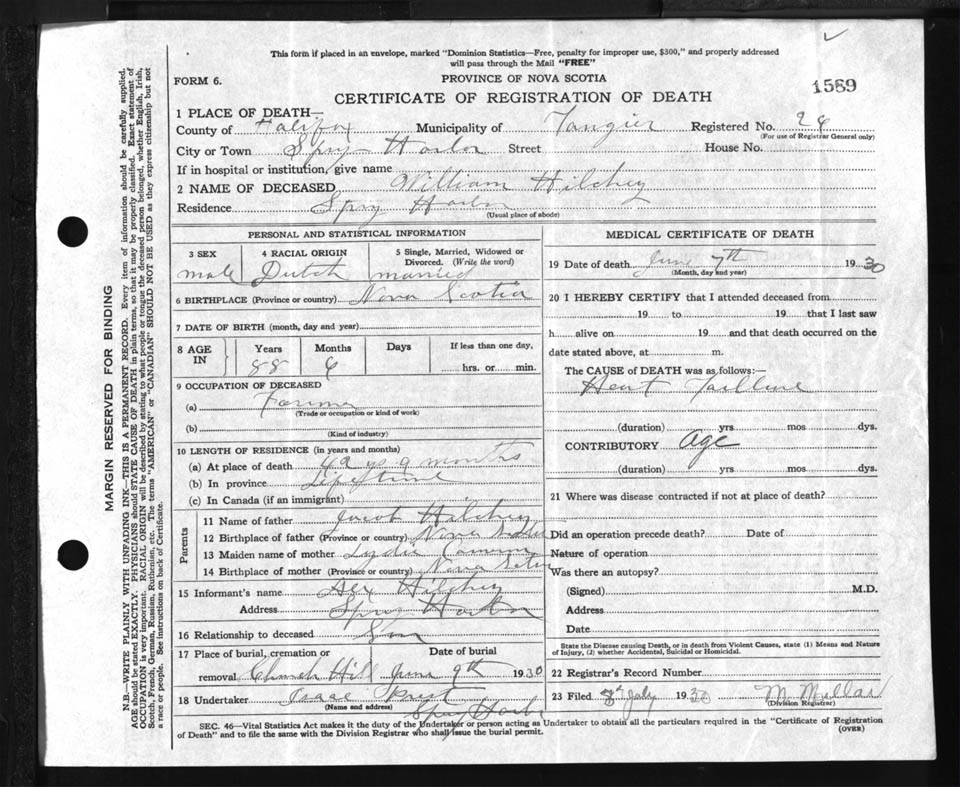 This form if placed in an envelope, marked "Dominion Statistics—Free, penalty for improper use, $300," and properly addressed
will pass through the Mail "FREE"
FORM 6.
PROVINCE OF NOVA SCOTIA
1589
CERTIFICATE OF REGISTRATION OF DEATH
1 PLACE OF DEATH—
County of Halifax Municipality of Tangier Registered No. 24
(For use of Registrar General only)
City or Town Spry Harbor Street House No.
If in hospital or institution, give name
2 NAME OF DECEASED William Hilchey
Residence Spry Harbor
(Usual place of abode)
PERSONAL AND STATISTICAL INFORMATION
3 SEX 4 RACIAL ORIGIN 5 Single, Married, Widowed or
Divorced. (Write the word)
male Dutch married
6 BIRTHPLACE (Province or country) Nova Scotia
7 DATE OF BIRTH (month, day and year)
8 AGE IN Years Months Days If less than one day,
88 6 hrs. or min.
9 OCCUPATION OF DECEASED
(a) Farmer
(Trade or occupation or kind of work)
(b)
(Kind of industry)
10 LENGTH OF RESIDENCE (in years and months)
(a) At place of death 9 months
(b) In province Lifetime
(c) In Canada (if an immigrant)
Parents
11 Name of father Jacob Hilchey
12 Birthplace of father (Province or country) Nova Scotia
13 Maiden name of mother Lydia
14 Birthplace of mother (Province or country) Nova Scotia
15 Informant's name Alex Hilchey
Address Spry Harbor
16 Relationship to deceased Son
17 Place of burial, cremation or Date of burial
removal Church Hill June 9th 1930
18 Undertaker Isaac Prest
(Name and address) Spry Harbor
MEDICAL CERTIFICATE OF DEATH
19 Date of death June 7th 1930
(Month, day and year)
20 I HEREBY CERTIFY that I attended deceased from
19 to 19 that I last saw
h alive on 19 and that death occurred on the
date stated above, at m.
The CAUSE of DEATH was as follows:—
Heart Failure
(duration) yrs mos dys.
CONTRIBUTORY Age
(duration) yrs mos dys.
21 Where was disease contracted if not at place of death?
Did an operation precede death? Date of
Nature of operation
Was there an autopsy?
(Signed) M.D.
Address
Date
State the Disease causing Death, or in death from Violent Causes, state (1) Means and Nature
of Injury, (2) whether Accidental, Suicidal or Homicidal.
22 Registrar's Record Number
23 Filed July 1930 M. Mullar
(Division Registrar)
SEC. 46—Vital Statistics Act makes it the duty of the Undertaker or person acting as Undertaker to obtain all the particulars required in the "Certificate of Registration
of Death" and to file the same with the Division Registrar who shall issue the burial permit.
(OVER)
MARGIN RESERVED FOR BINDING
N.B.—WRITE PLAINLY WITH UNFADING INK—THIS IS A PERMANENT RECORD. Every item of information should be carefully supplied.
AGE should be stated EXACTLY. PHYSICIANS should STATE CAUSE OF DEATH in plain terms, so that it may be properly classified. Exact statement of
OCCUPATION is very important. RACIAL ORIGIN will be described by stating to what people or tongue the deceased person belonged, whether English, Irish,
Scotch, French, German, Russian, Ruthenian, etc. The terms "AMERICAN" or "CANADIAN" SHOULD NOT BE USED as they express citizenship but not
a race or people. See instructions on back of Certificate.